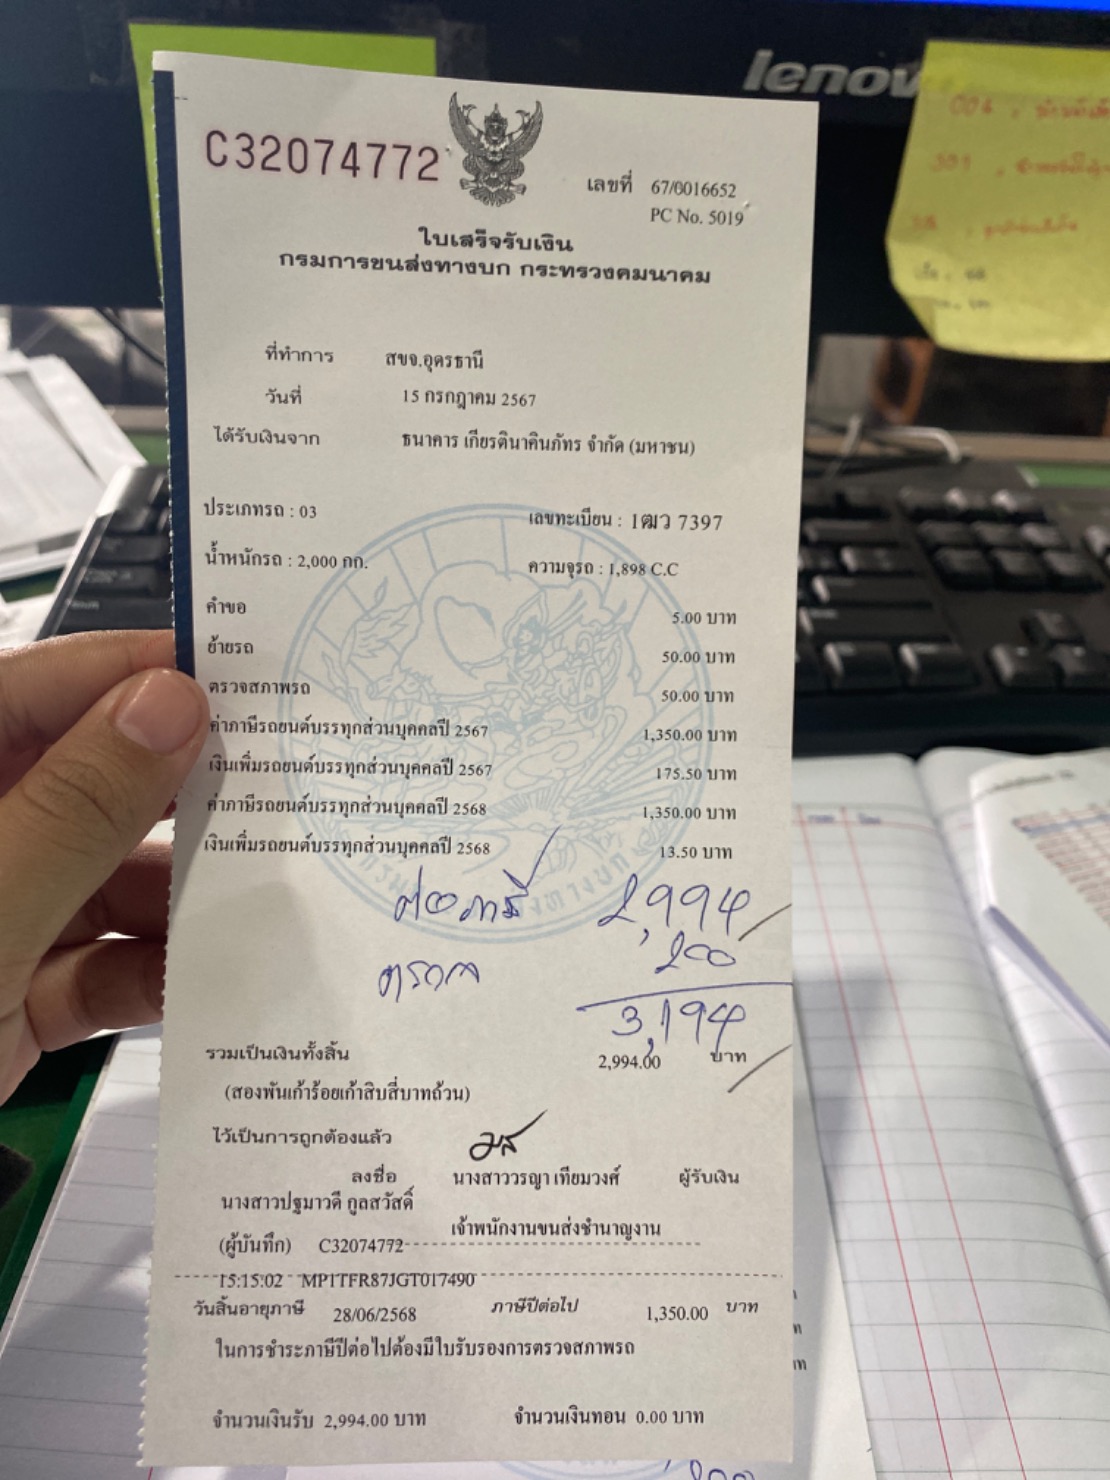 lenov
C32074772
เลขที่ 67/0016652
PC No. 5019
ใบเสร็จรับเงิน
กรมการขนส่งทางบก กระทรวงคมนาคม
ที่ทำการ สขจ.อุดรธานี
วันที่ 15 กรกฎาคม 2567
ได้รับเงินจาก ธนาคาร เกียรตินาคินภัทร จำกัด (มหาชน)
ประเภทรถ : 03 เลขทะเบียน : 1ฒว 7397
น้ำหนักรถ : 2,000 กก. ความจุรถ : 1,898 C.C
คำขอ 5.00 บาท
ย้ายรถ 50.00 บาท
ตรวจสภาพรถ 50.00 บาท
ค่าภาษีรถยนต์บรรทุกส่วนบุคคลปี 2567 1,350.00 บาท
เงินเพิ่มรถยนต์บรรทุกส่วนบุคคลปี 2567 175.50 บาท
ค่าภาษีรถยนต์บรรทุกส่วนบุคคลปี 2568 1,350.00 บาท
เงินเพิ่มรถยนต์บรรทุกส่วนบุคคลปี 2568 13.50 บาท
ต่อภาษี 2,994
ตรวจ 200
3,194
รวมเป็นเงินทั้งสิ้น 2,994.00 บาท
(สองพันเก้าร้อยเก้าสิบสี่บาทถ้วน)
ไว้เป็นการถูกต้องแล้ว
ลงชื่อ นางสาววรญา เทียมวงศ์ ผู้รับเงิน
นางสาวปฐมาวดี กูลสวัสดิ์
เจ้าพนักงานขนส่งชำนาญงาน
(ผู้บันทึก) C32074772
15:15:02 MP1TFR87JGT017490
วันสิ้นอายุภาษี 28/06/2568 ภาษีปีต่อไป 1,350.00 บาท
ในการชำระภาษีปีต่อไปต้องมีใบรับรองการตรวจสภาพรถ
จำนวนเงินรับ 2,994.00 บาท จำนวนเงินทอน 0.00 บาท